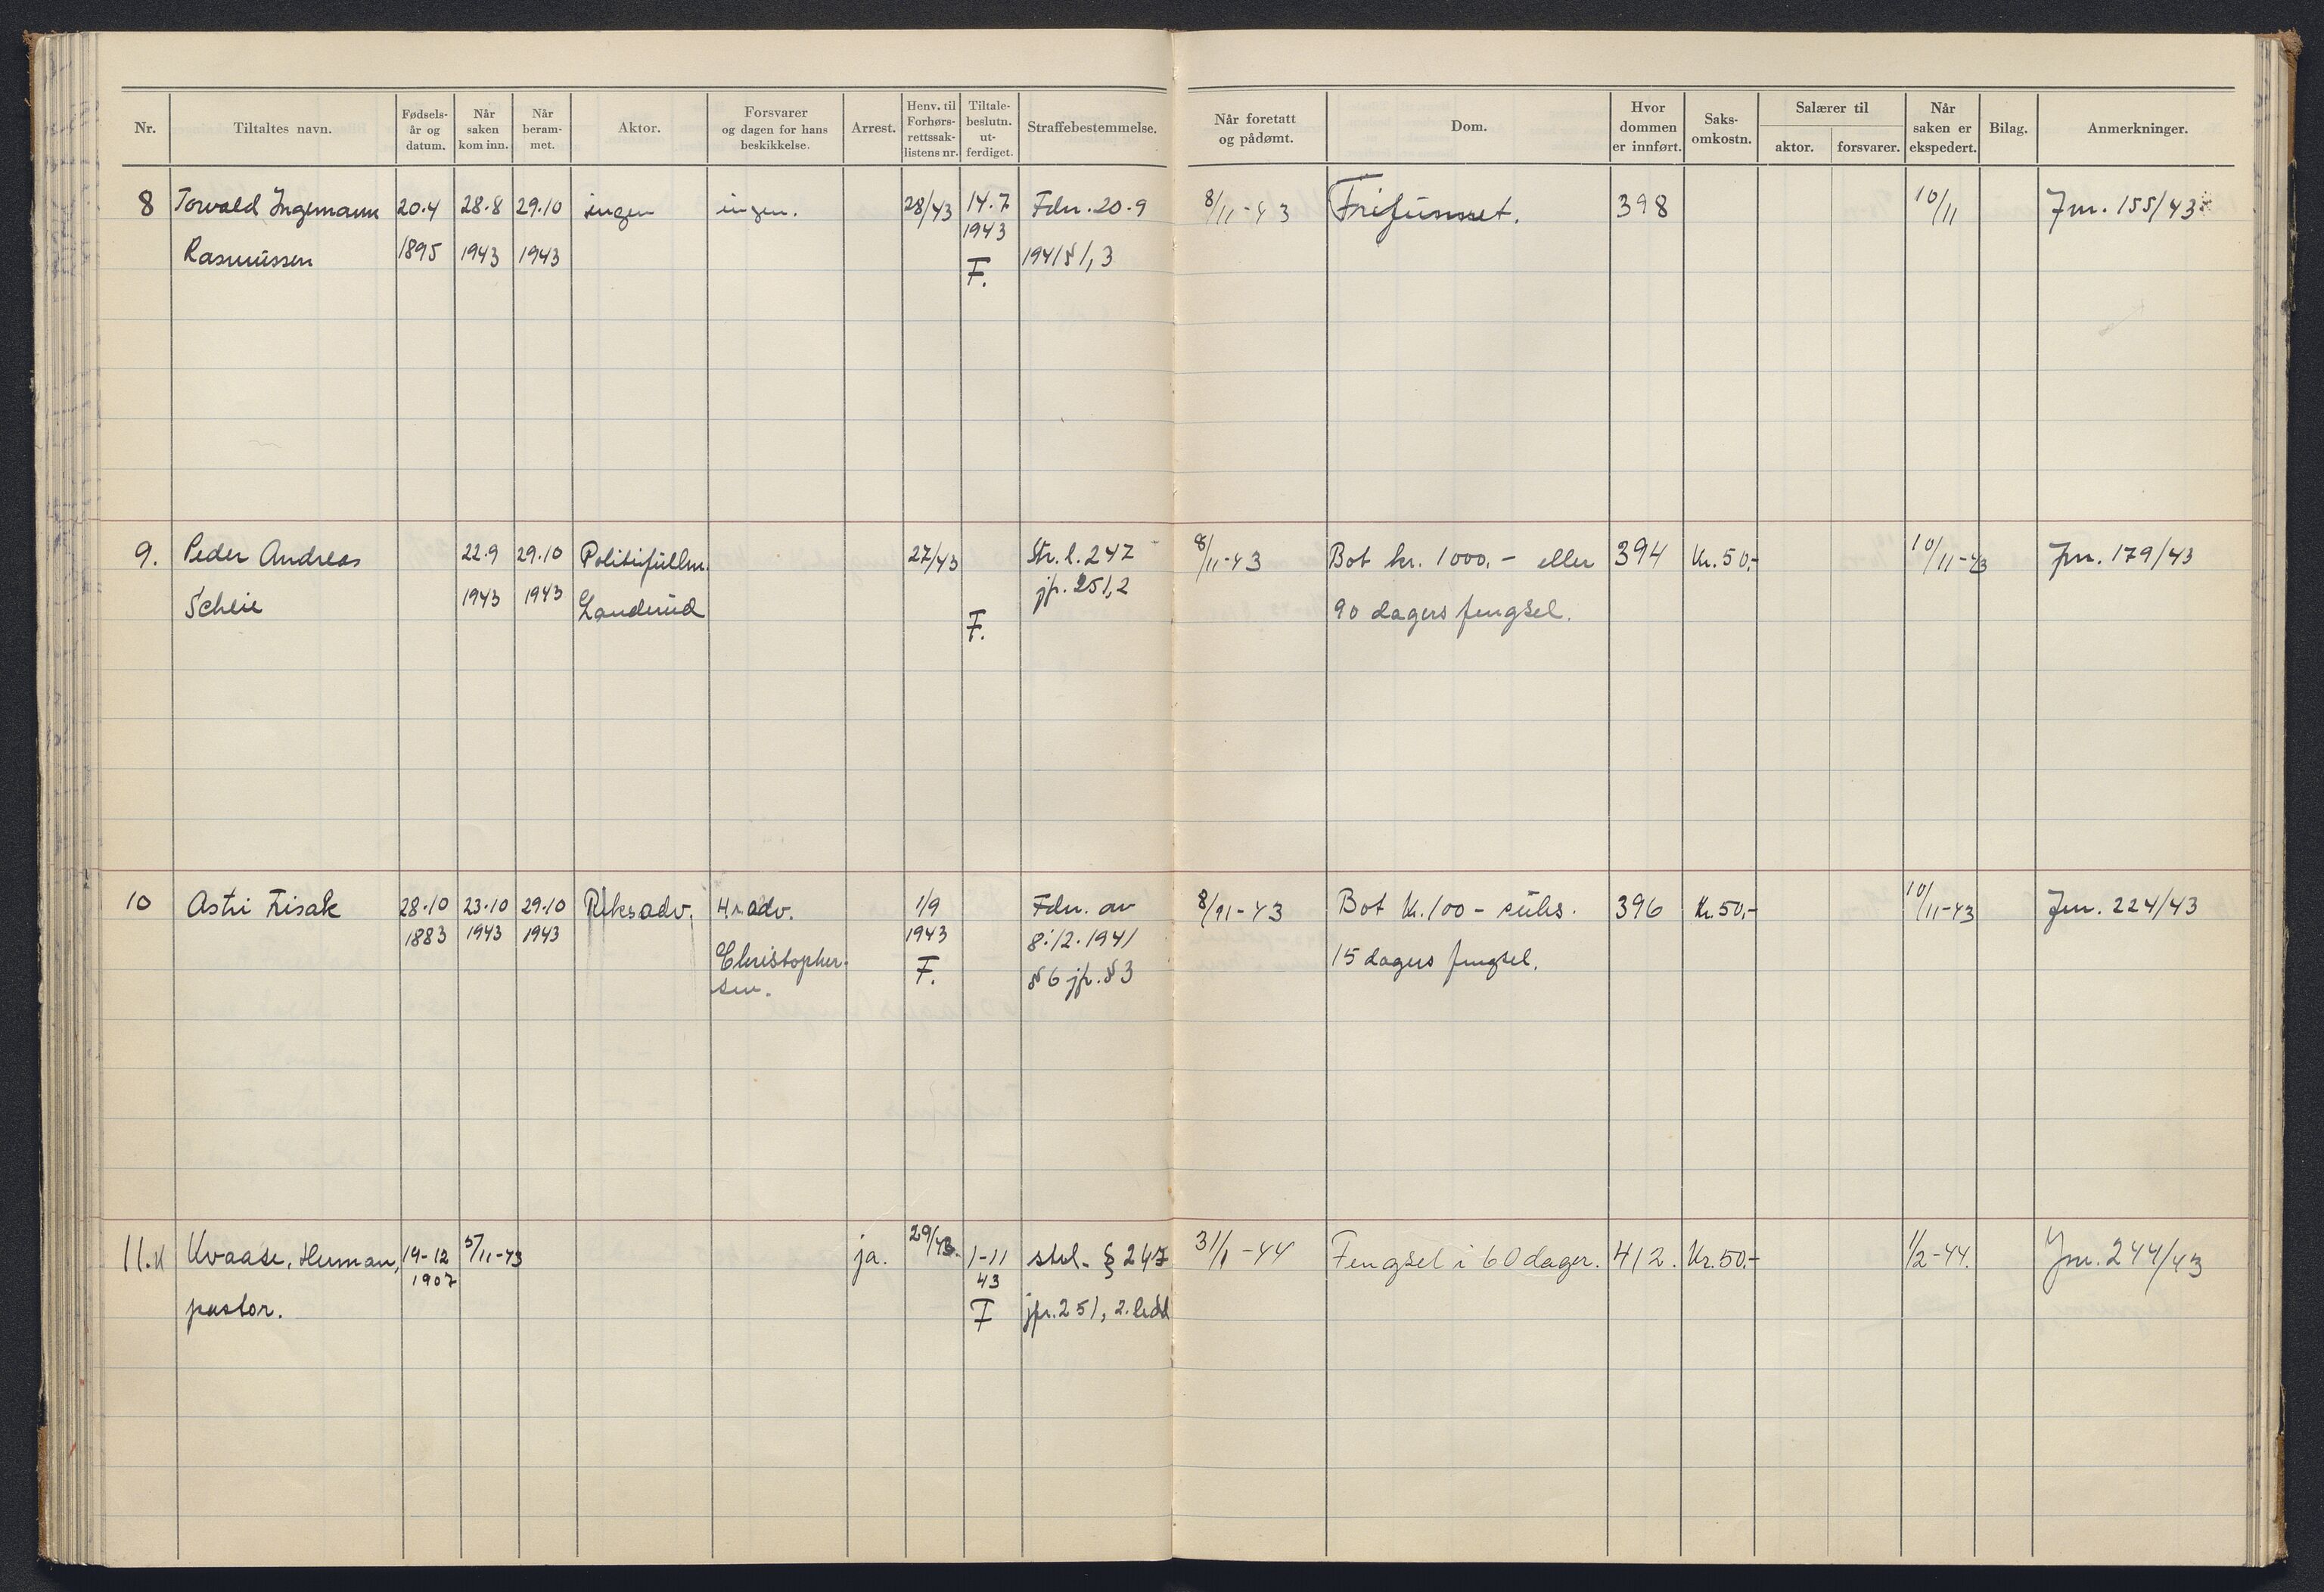 Nr. Tiltaltes navn. Fødsels-år og datum. Når saken kom inn. Når beram-met. Aktor. Forsvarer og dagen for hans beskikkelse. Arrest. Henv. til Forhørs-rettssak-listens nr. Tiltale-beslutn. ut-ferdiget. Straffebestemmelse. Når foretatt og pådømt. Dom. Hvor dommen er innført. Saks-omkostn. Salærer til aktor. forsvarer. Når saken er ekspedert. Bilag. Anmerkninger.
8 Torvald Ingemann 20.4 28.8 29.10 ingen ingen. 28/43 14.7 Fdn. 20.9 8/11-43 Frifunnet. 398 10/11 Jnr. 155/43
1943
Rasmussen 1895 1943 1943 F. 1941 § 1, 3
9. Peder Andreas 22.9 29.10 Politifullm. 27/43 Str. l. 247 8/11-43 Bot kr. 1000.- eller 394 Kr. 50,- 10/11-43 Jnr. 179/43
Scheie 1943 1943 Landerud F. jp. 251,2 90 dagers fengsel.
10 Astri Frisak 28.10 23.10 29.10 Riksadv. Hr adv. 1/9 Fdn. av 8/11-43 Bot kr. 100 - subs. 396 Kr. 50,- 10/11-43 Jnr. 224/43
1883 1943 1943 1943 8.12.1941
Christopher- F. § 6 jp. § 3 15 dagers fengsel.
sen.
11. Kvaase, Herman, 14-12 5/11-43 ja. 29/43. 1-11 strl. § 247 31/1-44 Fengsel i 60 dager. 412. Kr. 50.- 1/2-44. Jnr. 244/43
1907 43
pastor. F jfr. 251, 2. ledd